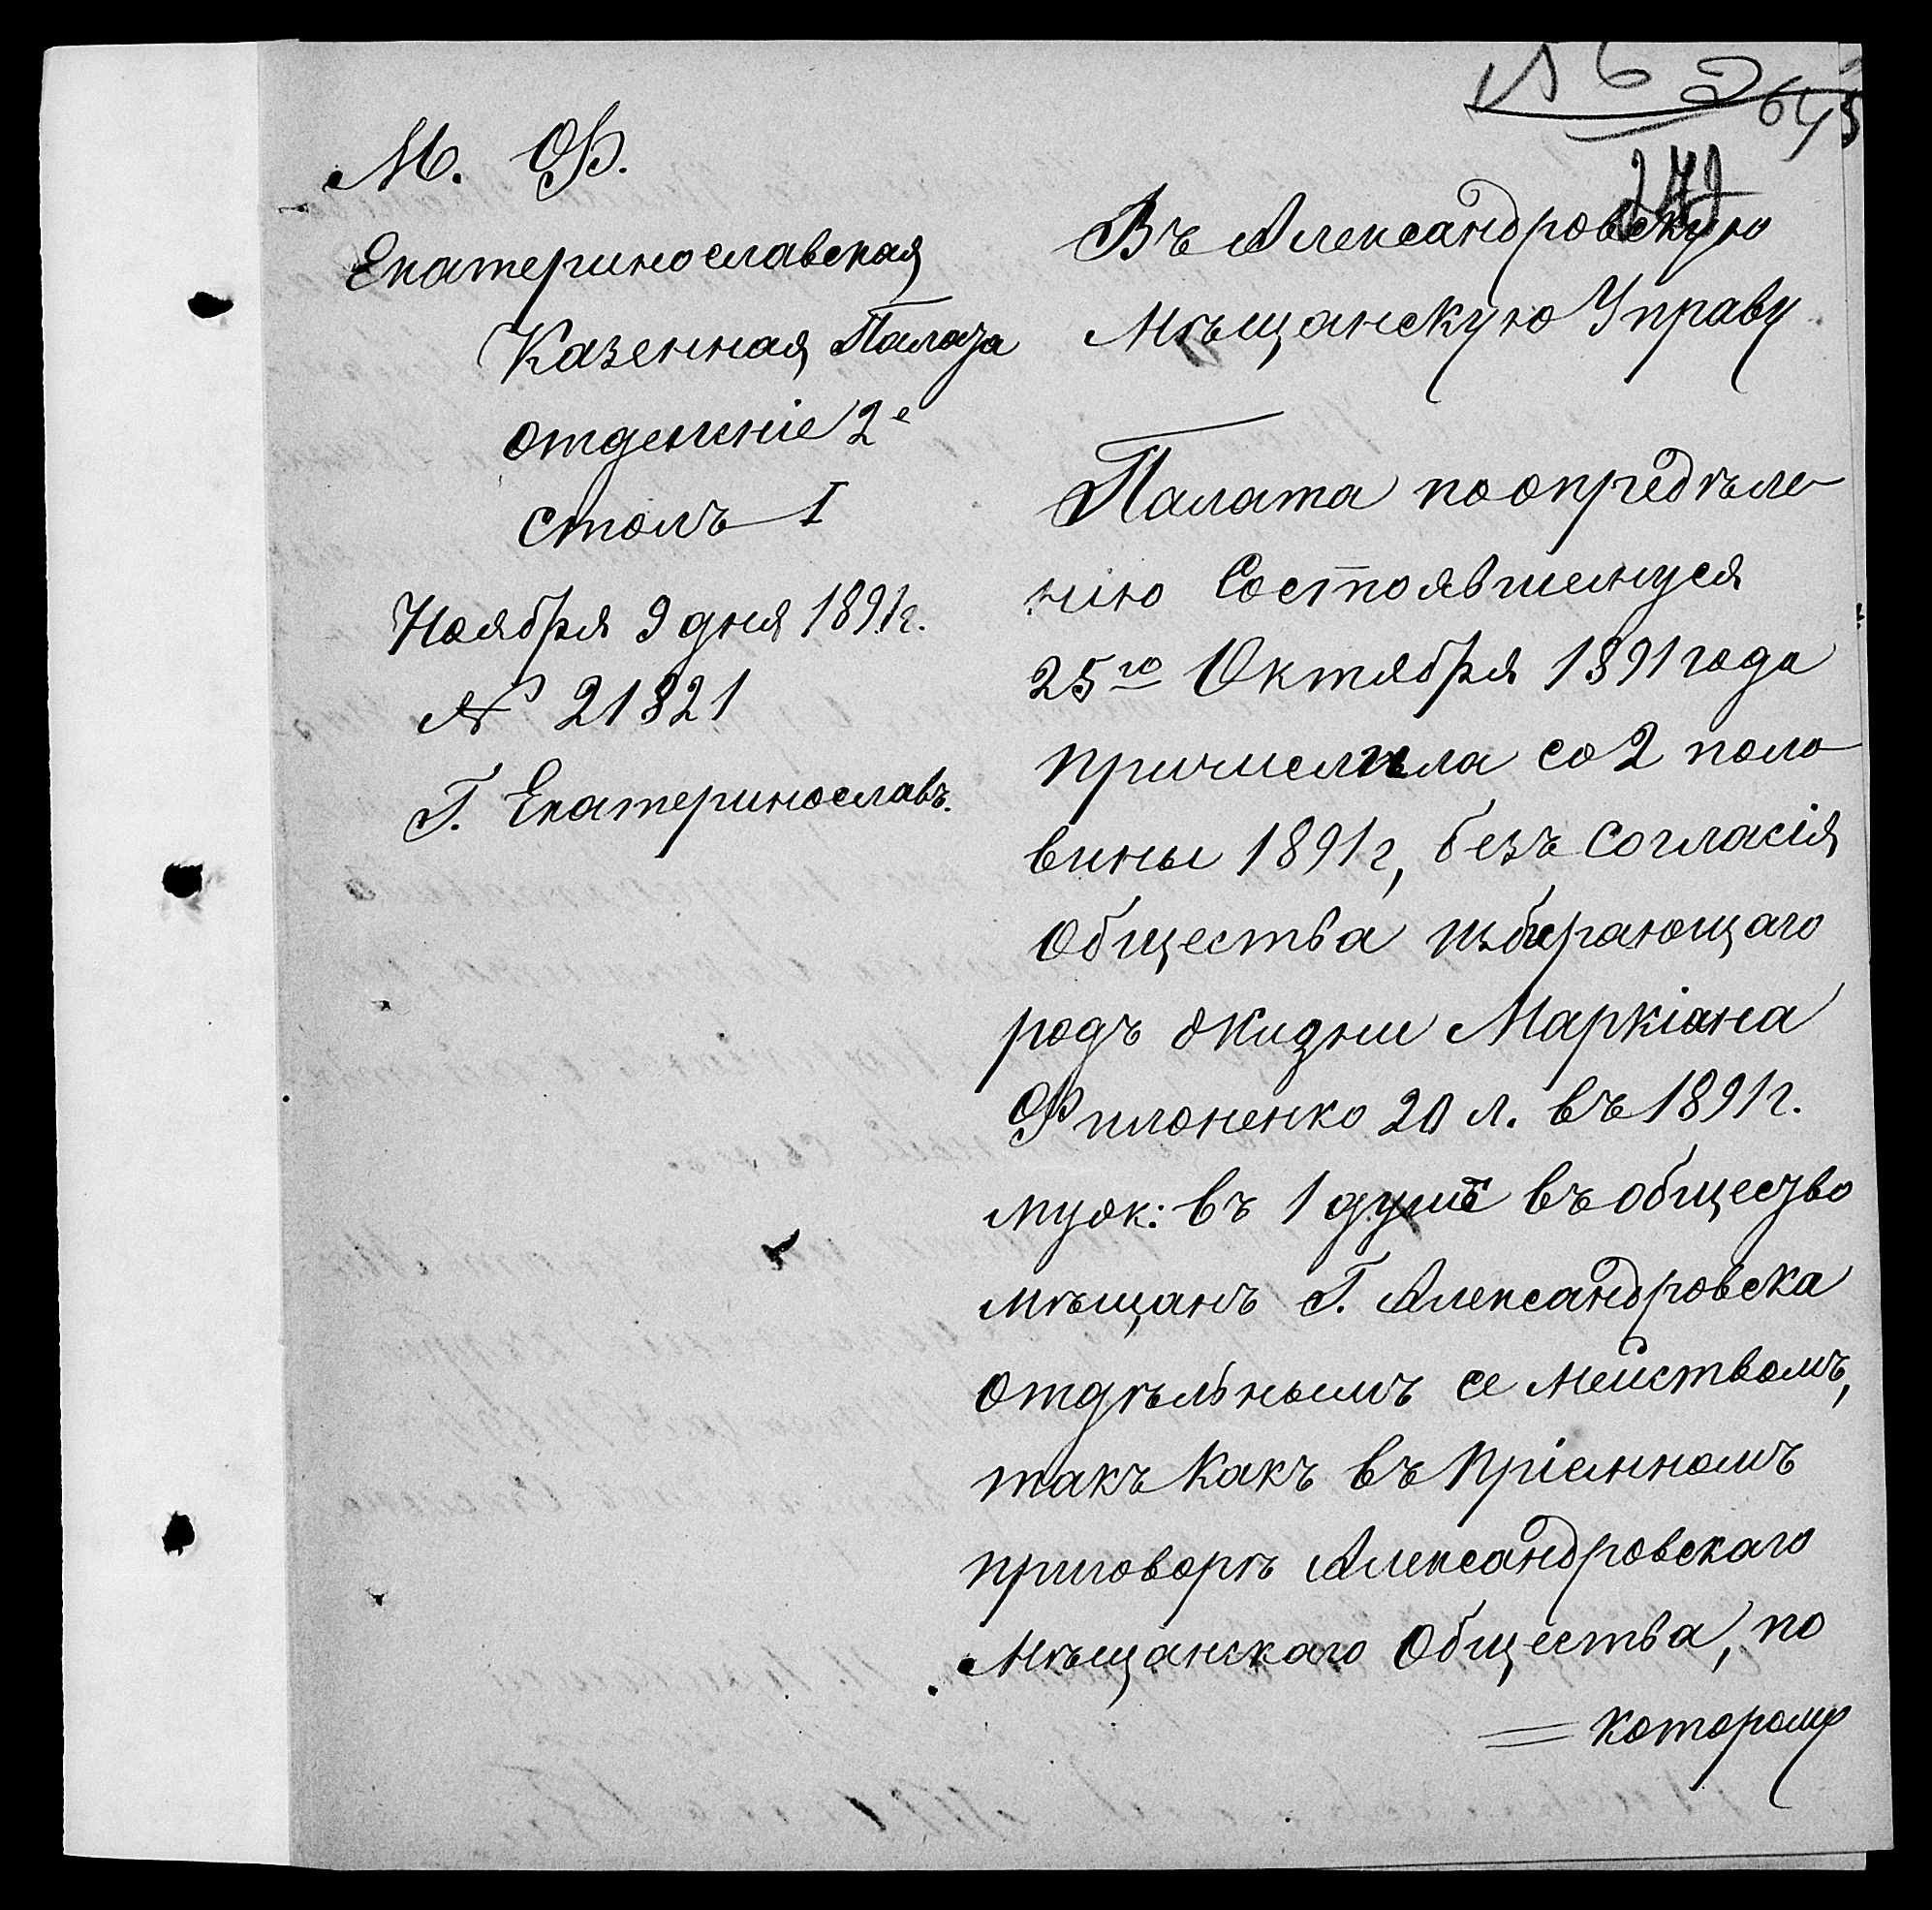 М. Ф.
Екатеринославская
Казенная Палата
отделеніе 2е
столъ I
Ноября 9 дня 1891г.
№ 21821
Г. Екатеринославъ.
Въ Александровскую
Мѣщанскую Управу
Палата по опредѣле-
нію Состоявшемуся
25го Октября 1891 года
причислила со 2 поло-
вины 1891 г, безъ согласія
Общества избирающаго
родъ жизни Маркіана
Филоненко 20 л. въ 1891 г.
муж: въ 1 душѣ въ общество
мѣщанъ Г. Александровска
отдѣльнымъ семействомъ,
такъ какъ въ пріемномъ
приговорѣ Александровскаго
Мѣщанскаго Общества, по
= которому